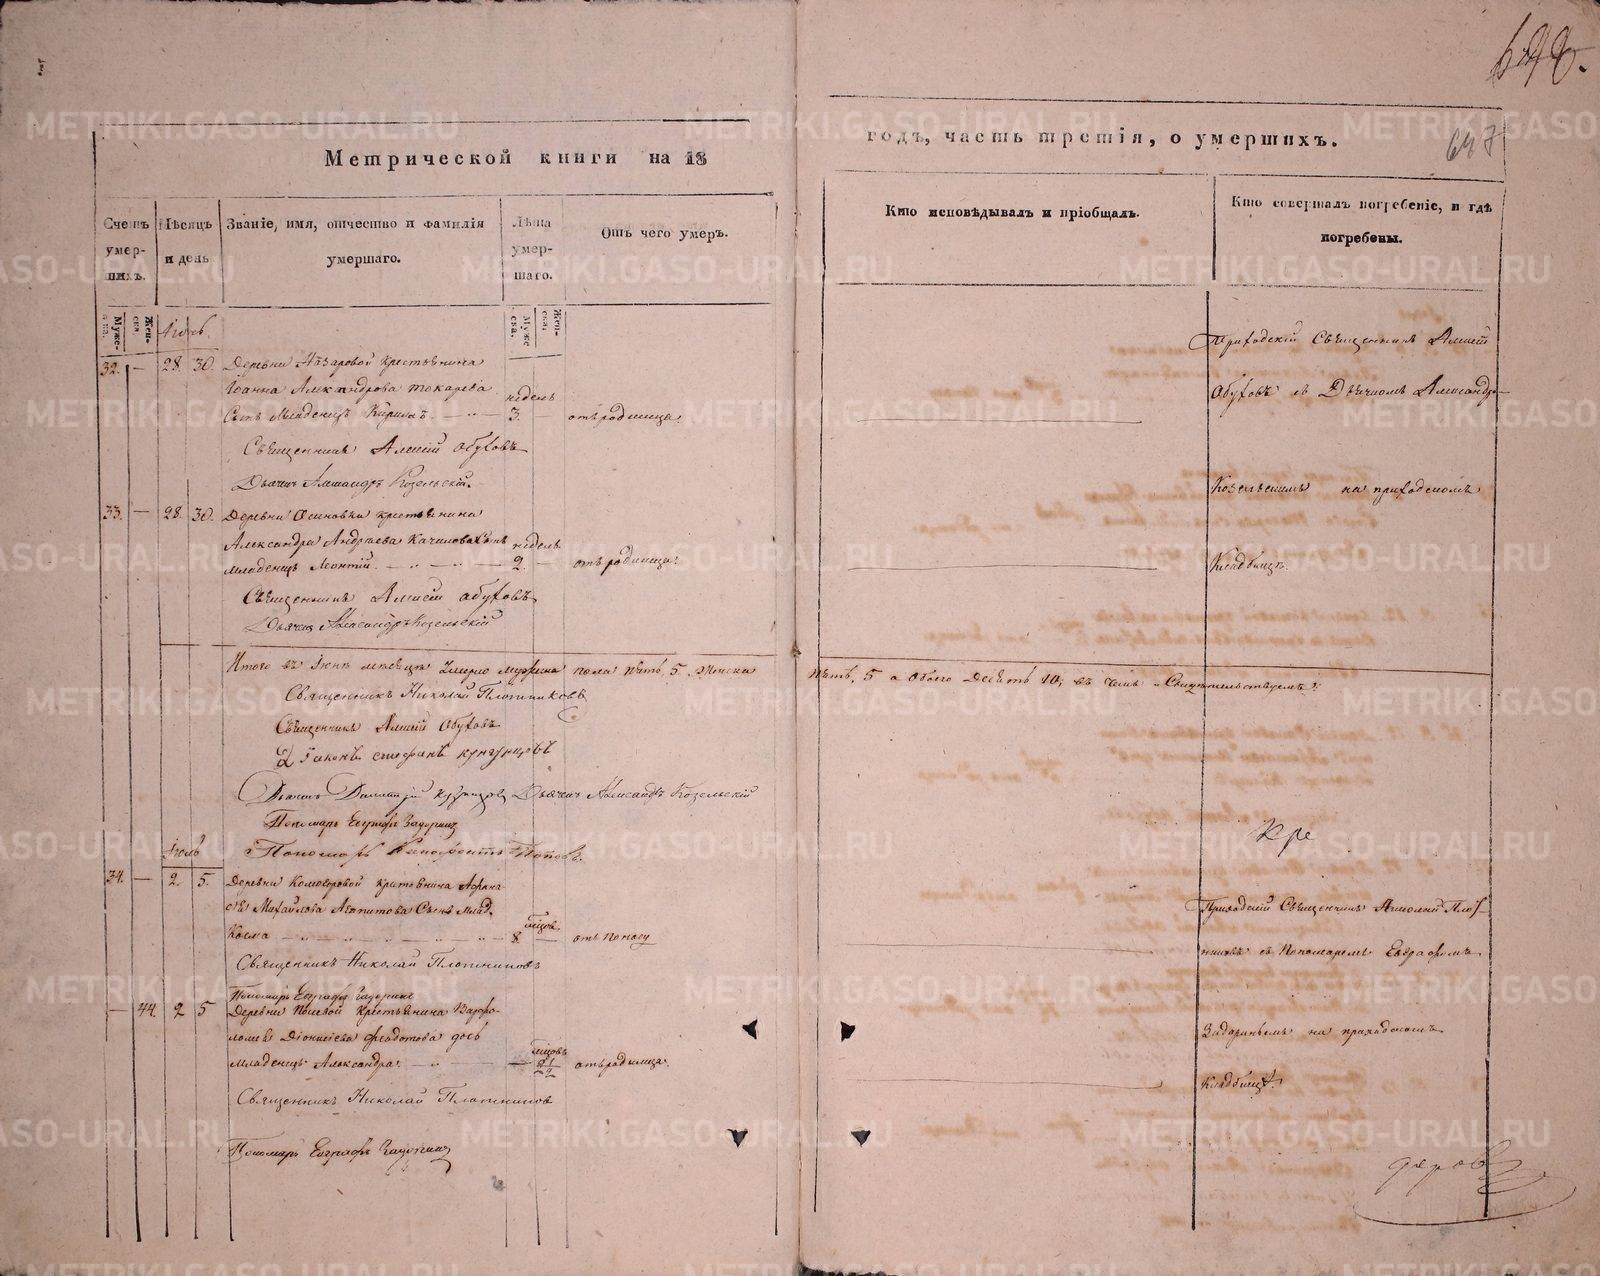 Метрической книги на 18
годъ, часть третія, о умершихъ.
647
Счетъ умер-
шихъ.
Мѣсяцъ
и день
Званіе, имя, отчество и фамилія
умершаго.
Лѣта
умер-
шаго.
Отъ чего умеръ.
Кто исповѣдывалъ и пріобщалъ.
Кто совершалъ погребеніе, и гдѣ
погребены.
Муже-
ска.
Жен-
ска.
Муже
ска.
Жен-
ска.
32. — 28 30. Деревни Назаровой крестьянина
Іоанна Александрова Токарева недель
Сынъ Младенецъ Кирилъ. 3. отъ родимца.
Священникъ Алексій Обуховъ
Дьячекъ Александръ Козельскій.
Приходскій Священникъ Алексій
Обуховъ съ Дьячкомъ Александро-
Козельскимъ на приходскомъ
Кладбищѣ.
33. — 28. 30. Деревни Осиновки крестьянина
Александра Андреева сынъ недель
младенецъ Леонтій. 2. — отъ родимца.
Священникъ Алексій Обуховъ
Дьячекъ Александръ Козельскій
Итого въ Іюнѣ месяцѣ умерло мужеска пола пять, 5. Женска
пять, 5 а обоего десять 10; въ чемъ и свидѣтельствуемъ:
Священникъ Николай Плотниковъ
Священникъ Алексій Обуховъ
Діаконъ Стефанъ Кунгурцовъ
Дьячекъ Дьячекъ Александръ Козельскій
Пономарь Евграфъ Задоринъ
Іюль
Пономарь Поповъ.
34. — 2. 5. Деревни крестьянина Афана-
сія Михайлова Сынъ млад.
Косма мѣсяцов. 8 — отъ поносу
Священникъ Николай Плотниковъ
Пономарь Евграфъ Задоринъ
Приходскій Священникъ Николай Плот-
никовъ съ Пономаремъ Евграфомъ
Задоринымъ на приходскомъ
Кладбищѣ.
— 44. 2 5 Деревни крестьянина Варфо-
ломея Діонисіева Федотова дочь
младенецъ Александра. — отъ родимца.
Священникъ Николай Плотниковъ
Пономарь Евграфъ Задоринъ
METRIKI.GASO-URAL.RU